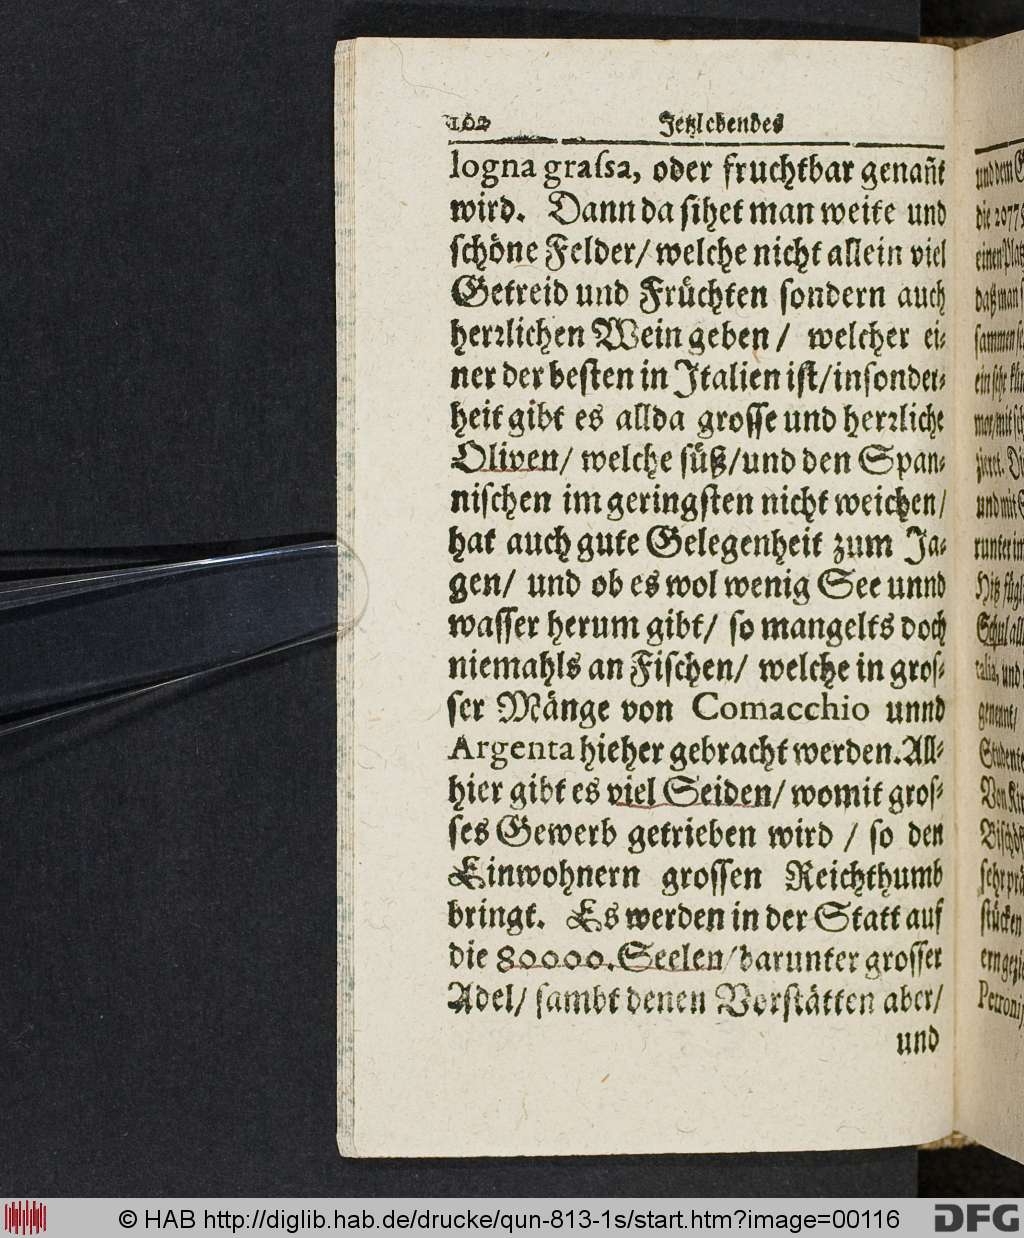 102 Jetzlebendes
logna graſsa, oder fruchtbar genañt
wird. Dann da ſihet man weite und
ſchöne Felder/ welche nicht allein viel
Getreid und Früchten ſondern auch
herꝛlichen Wein geben/ welcher ei⸗
ner der beſten in Italien iſt/ inſonder⸗
heit gibt es allda groſſe und herꝛliche
Oliven/ welche ſüß/ und den Span⸗
niſchen im geringſten nicht weichen/
hat auch gute Gelegenheit zum Ja⸗
gen/ und ob es wol wenig See unnd
waſſer herum gibt/ ſo mangelts doch
niemahls an Fiſchen/ welche in groſ⸗
ſer Mänge von Comacchio unnd
Argenta hieher gebracht werden. All⸗
hier gibt es viel Seiden/ womit groſ⸗
ſes Gewerb getrieben wird / ſo den
Einwohnern groſſen Reichthumb
bringt. Es werden in der Statt auf
die 80000. Seelen/ darunter groſſer
Adel/ ſambt denen Vorſtätten aber/
und
und dem
die
einen
daß man
ein
und mit
Studente
Von
ſtücken
© HAB http://diglib.hab.de/drucke/qun-813-1s/start.htm?image=00116
DFG